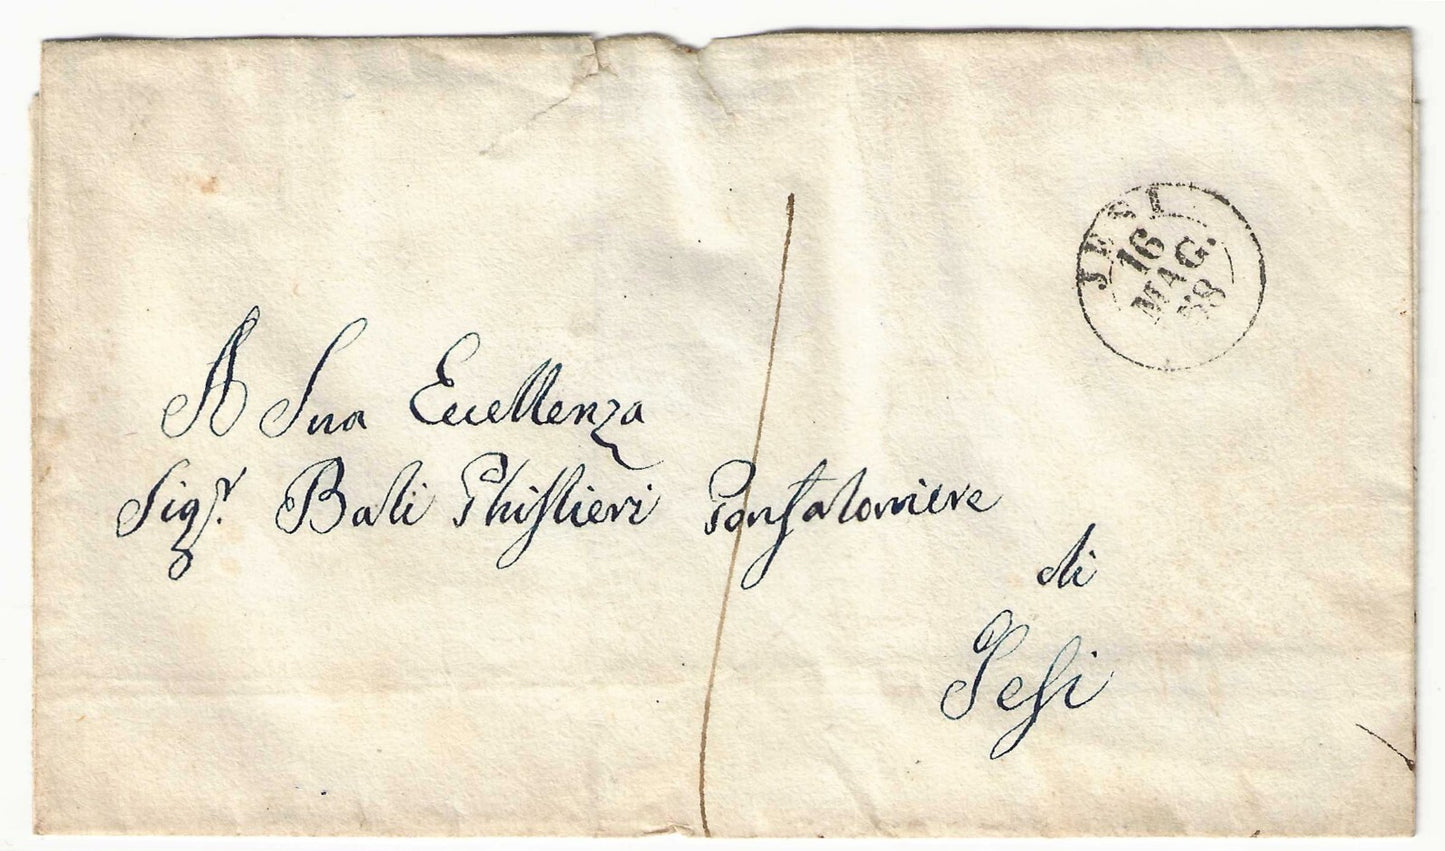 JESI
16
MAG.
58
A Sua Eccellenza
Sigr. Balì Ghislieri Gonfaloniere
di
Jesi